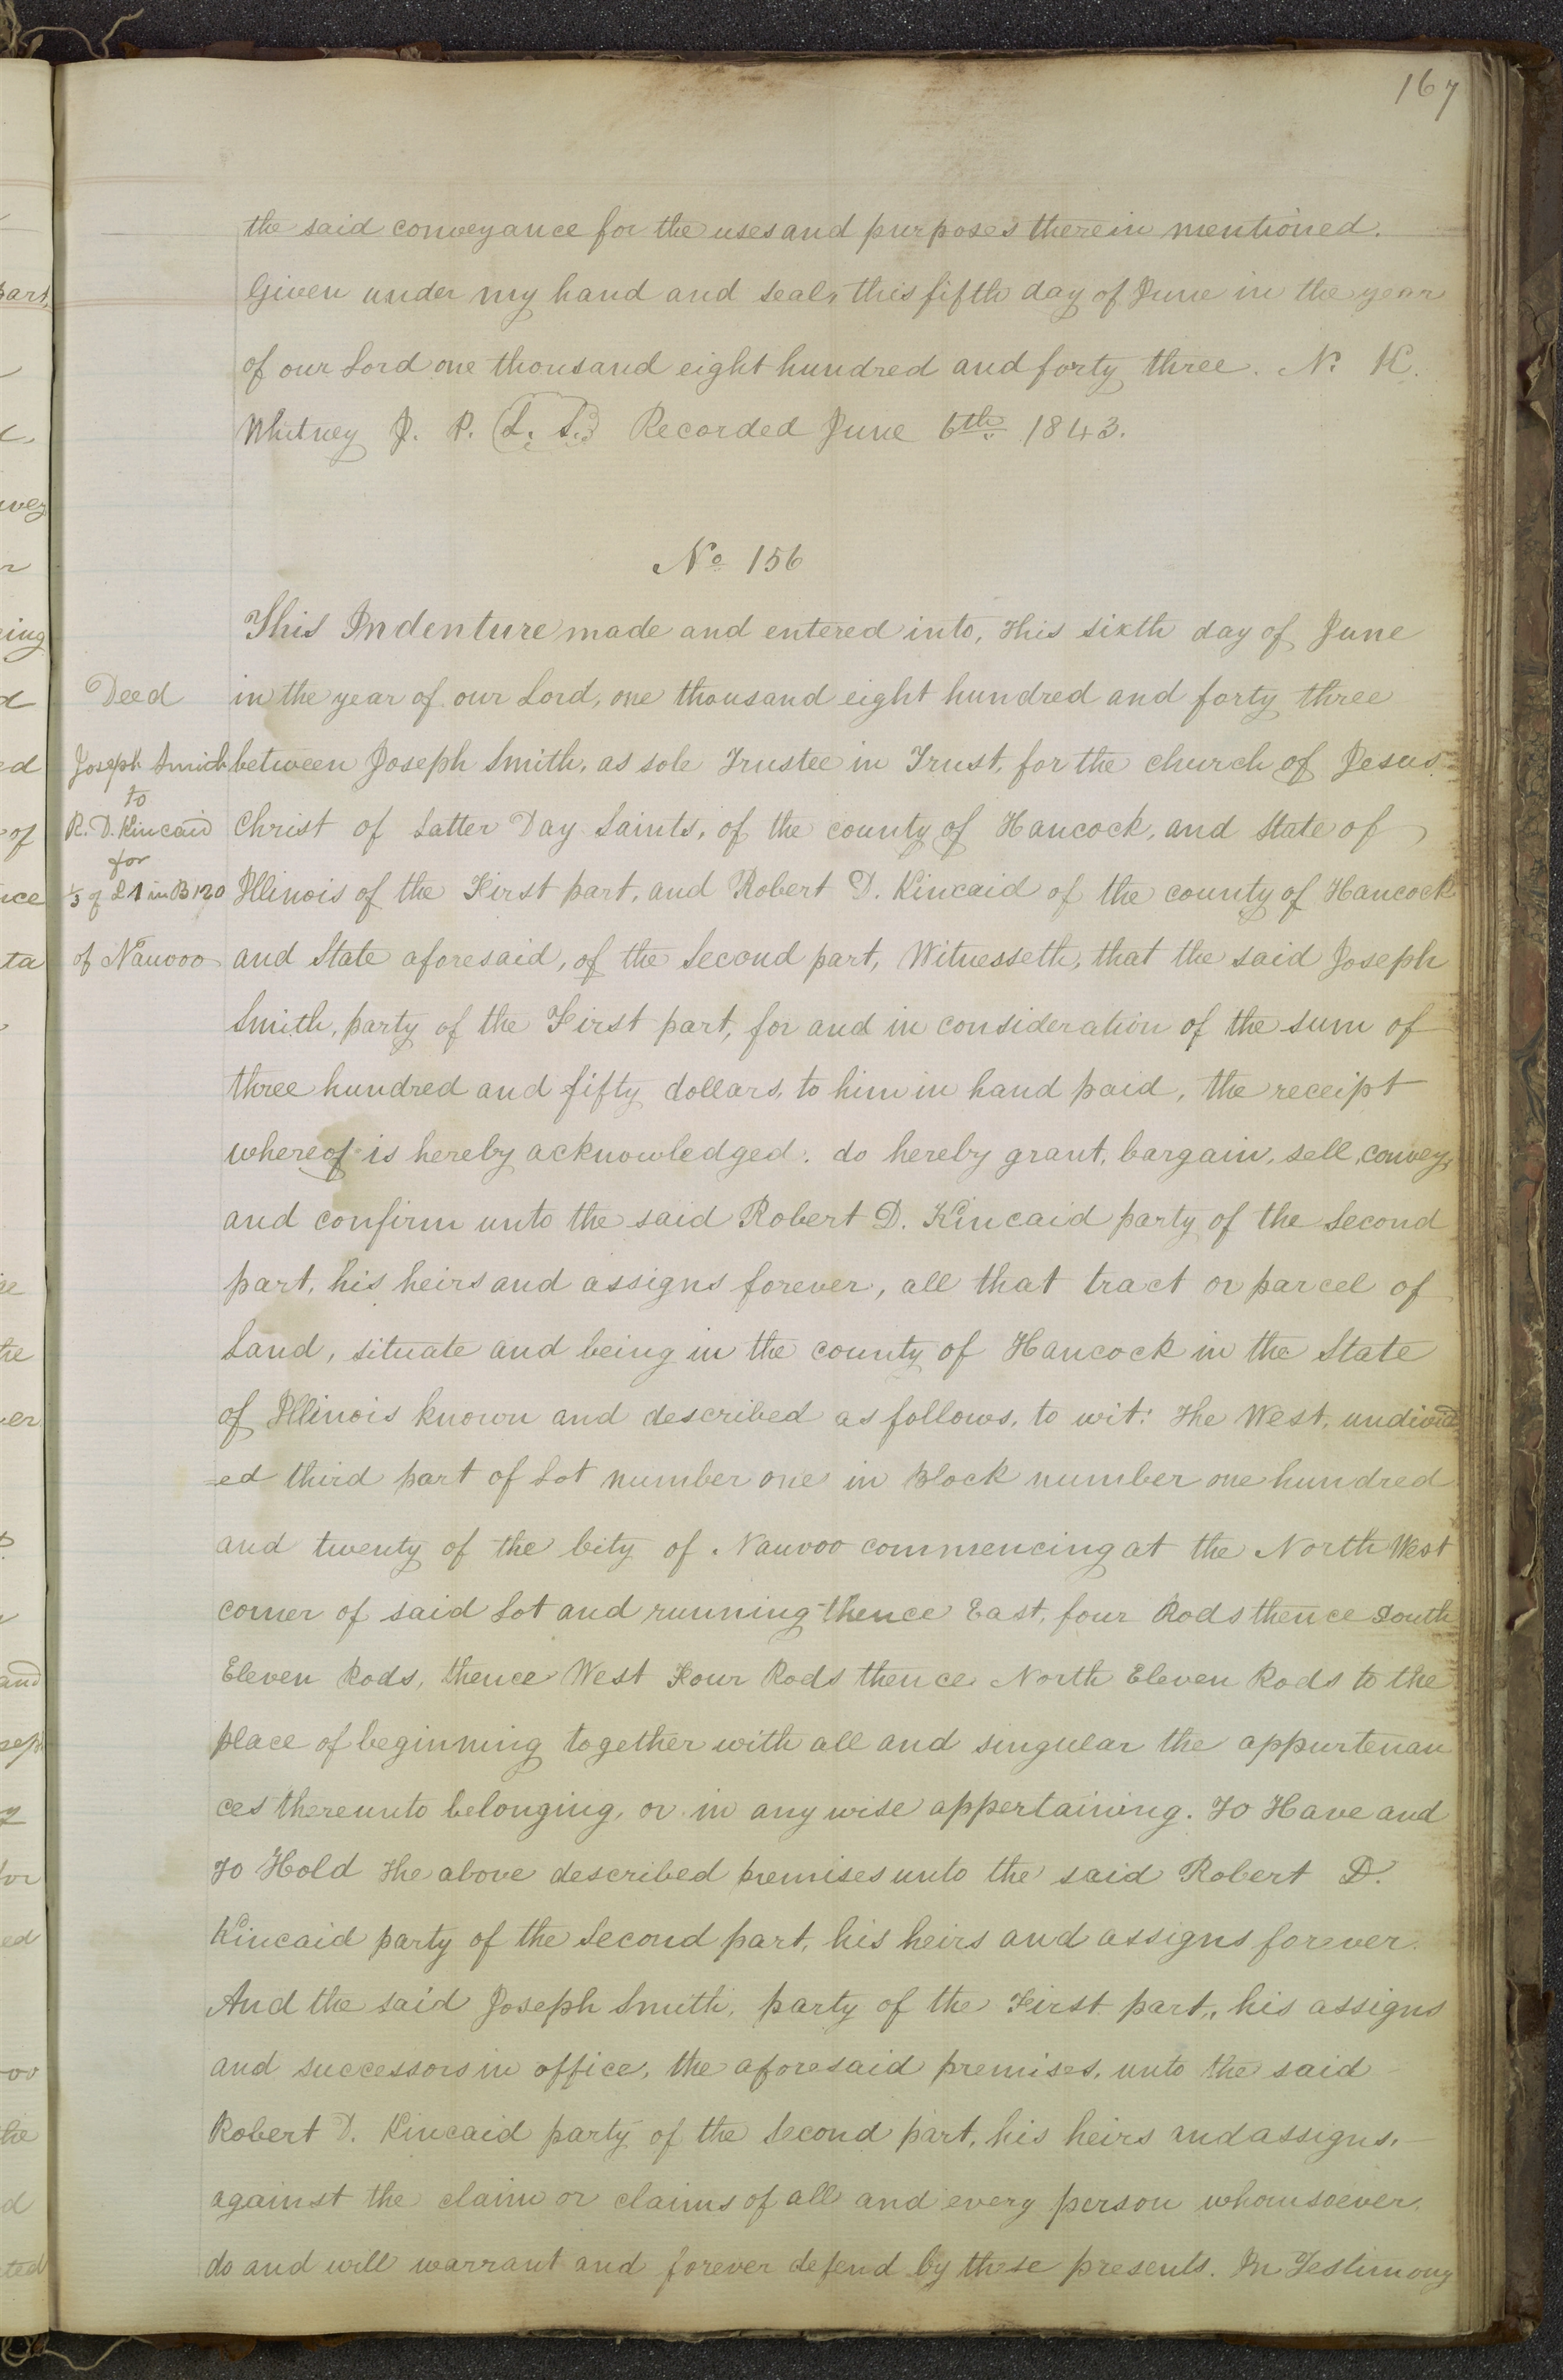 167
the said conveyance for the uses and purposes therein mentioned.
Given under my hand and seal, this fifth day of June in the year
of our Lord one thousand eight hundred and forty three. N. K.
Whitney J. P. (L. S.) Recorded June 6th. 1843.
No 156
This Indenture made and entered into, this sixth day of June
in the year of our Lord, one thousand eight hundred and forty three
between Joseph Smith, as sole Trustee in Trust, for the church of Jesus
Christ of Latter Day Saints, of the county of Hancock, and State of
Illinois of the First part, and Robert D. Kincaid of the county of Hancock
and State aforesaid, of the Second part, Witnesseth, that the said Joseph
Smith, party of the First part, for and in consideration of the sum of
three hundred and fifty dollars, to him in hand paid, the receipt
whereof is hereby acknowledged. do hereby grant, bargain, sell, convey,
and confirm unto the said Robert D. Kincaid party of the Second
part, his heirs and assigns forever, all that tract or parcel of
Land, situate and being in the county of Hancock in the State
of Illinois known and described as follows, to wit: The West, undivid
=ed third part of Lot number one in Block number one hundred
and twenty of the City of Nauvoo commencing at the North West
corner of said Lot and running thence East, four Rods thence South
Eleven Rods, thence West Four Rods thence North Eleven Rods to the
place of beginning together with all and singular the appurtenan
ces thereunto belonging, or in any wise appertaining. To Have and
To Hold The above described premises unto the said Robert D.
Kincaid party of the Second part, his heirs and assigns forever.
And the said Joseph Smith, party of the First part, his assigns
and successors in office, the aforesaid premises, unto the said
Robert D. Kincaid party of the Second part, his heirs and assigns,
against the claim or claims of all and every person whomsoever,
do and will warrant and forever defend by these presents. In Testimony
Deed
Joseph Smith
to
R. D. Kincaid
for
⅓ of L 1 in B 120
of Nauvoo